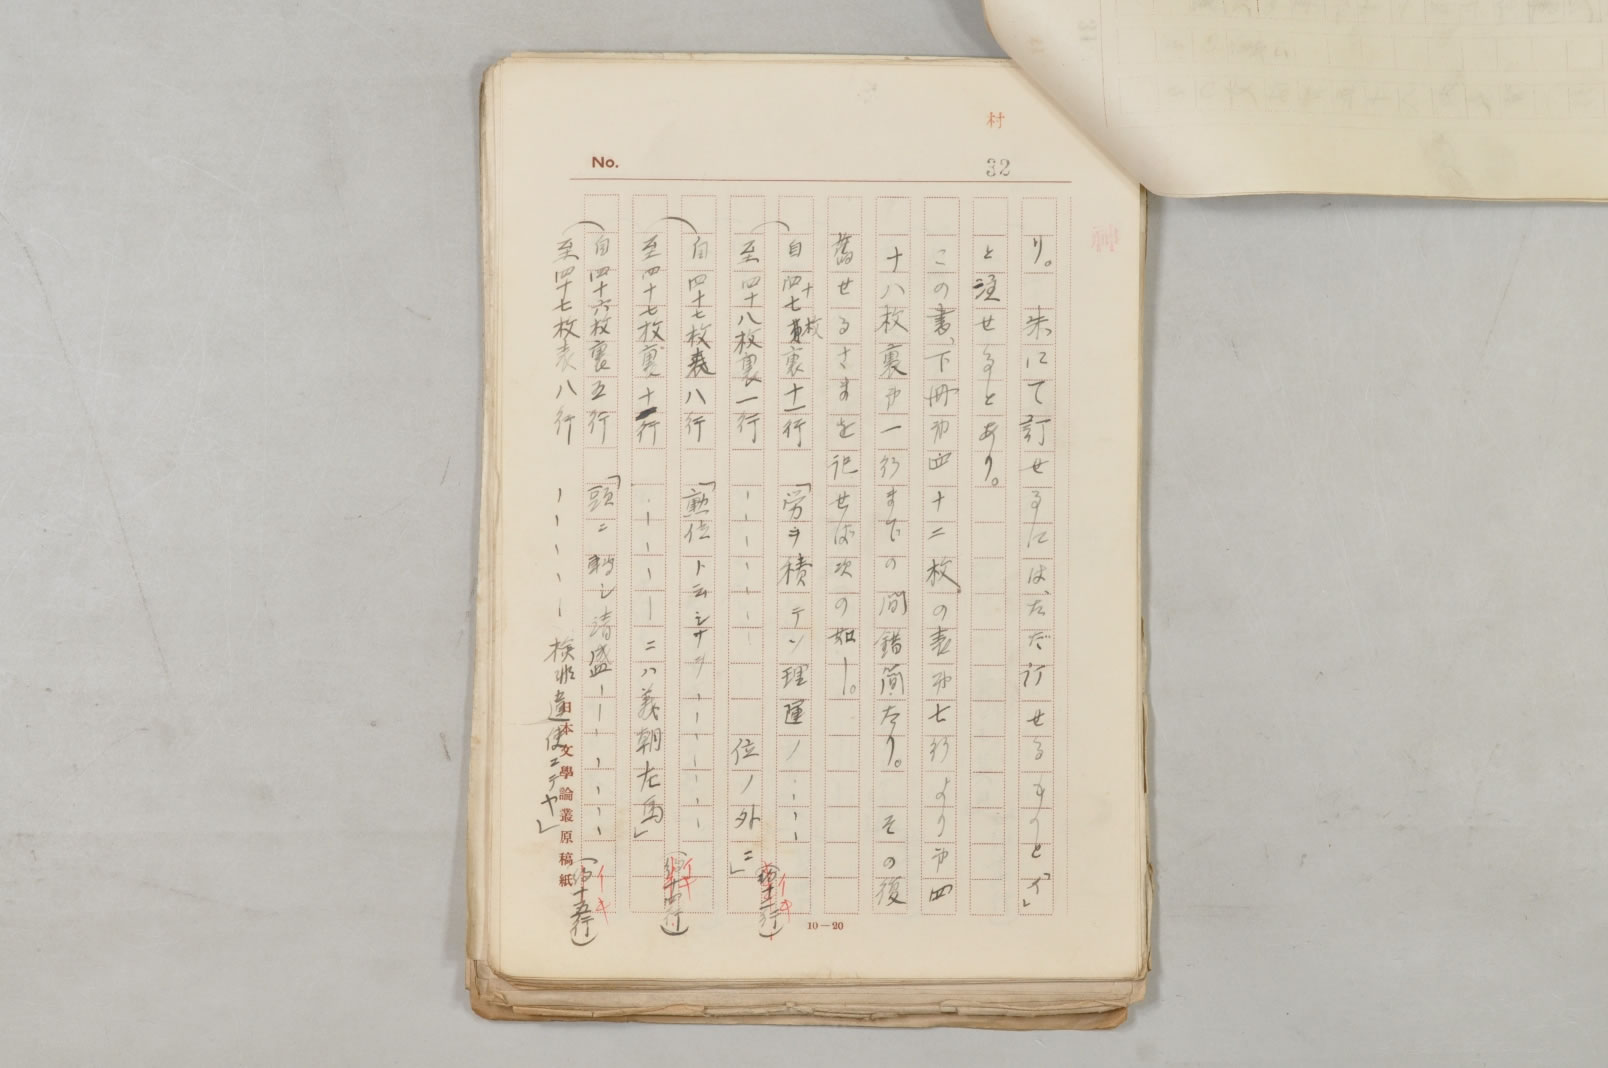 村
No. 32
り。 朱にて訂せるには、ただ訂せるものと「イ」
と注せるとあり。
この書、下冊第四十二枚の表第七行より第四
十八枚裏第一行までの間錯簡たり。 その復
舊せるさまを記せば次の如し。
自四十七枚裏十一行 「労ヲ積テン理運ノ
至四十八枚裏一行 位ノ外ニ」 (約十一行) イキ
自四十七枚表八行 「勲位ト云シナラ
至四十七枚裏十行 ニハ義朝左馬」 (約十四行) イキ
自四十六枚裏五行 「頭ニ轉シ清盛
至四十七枚表八行 検非違使ニテヤ」 (約十五行) イキ
日本文學論叢原稿紙
10—20